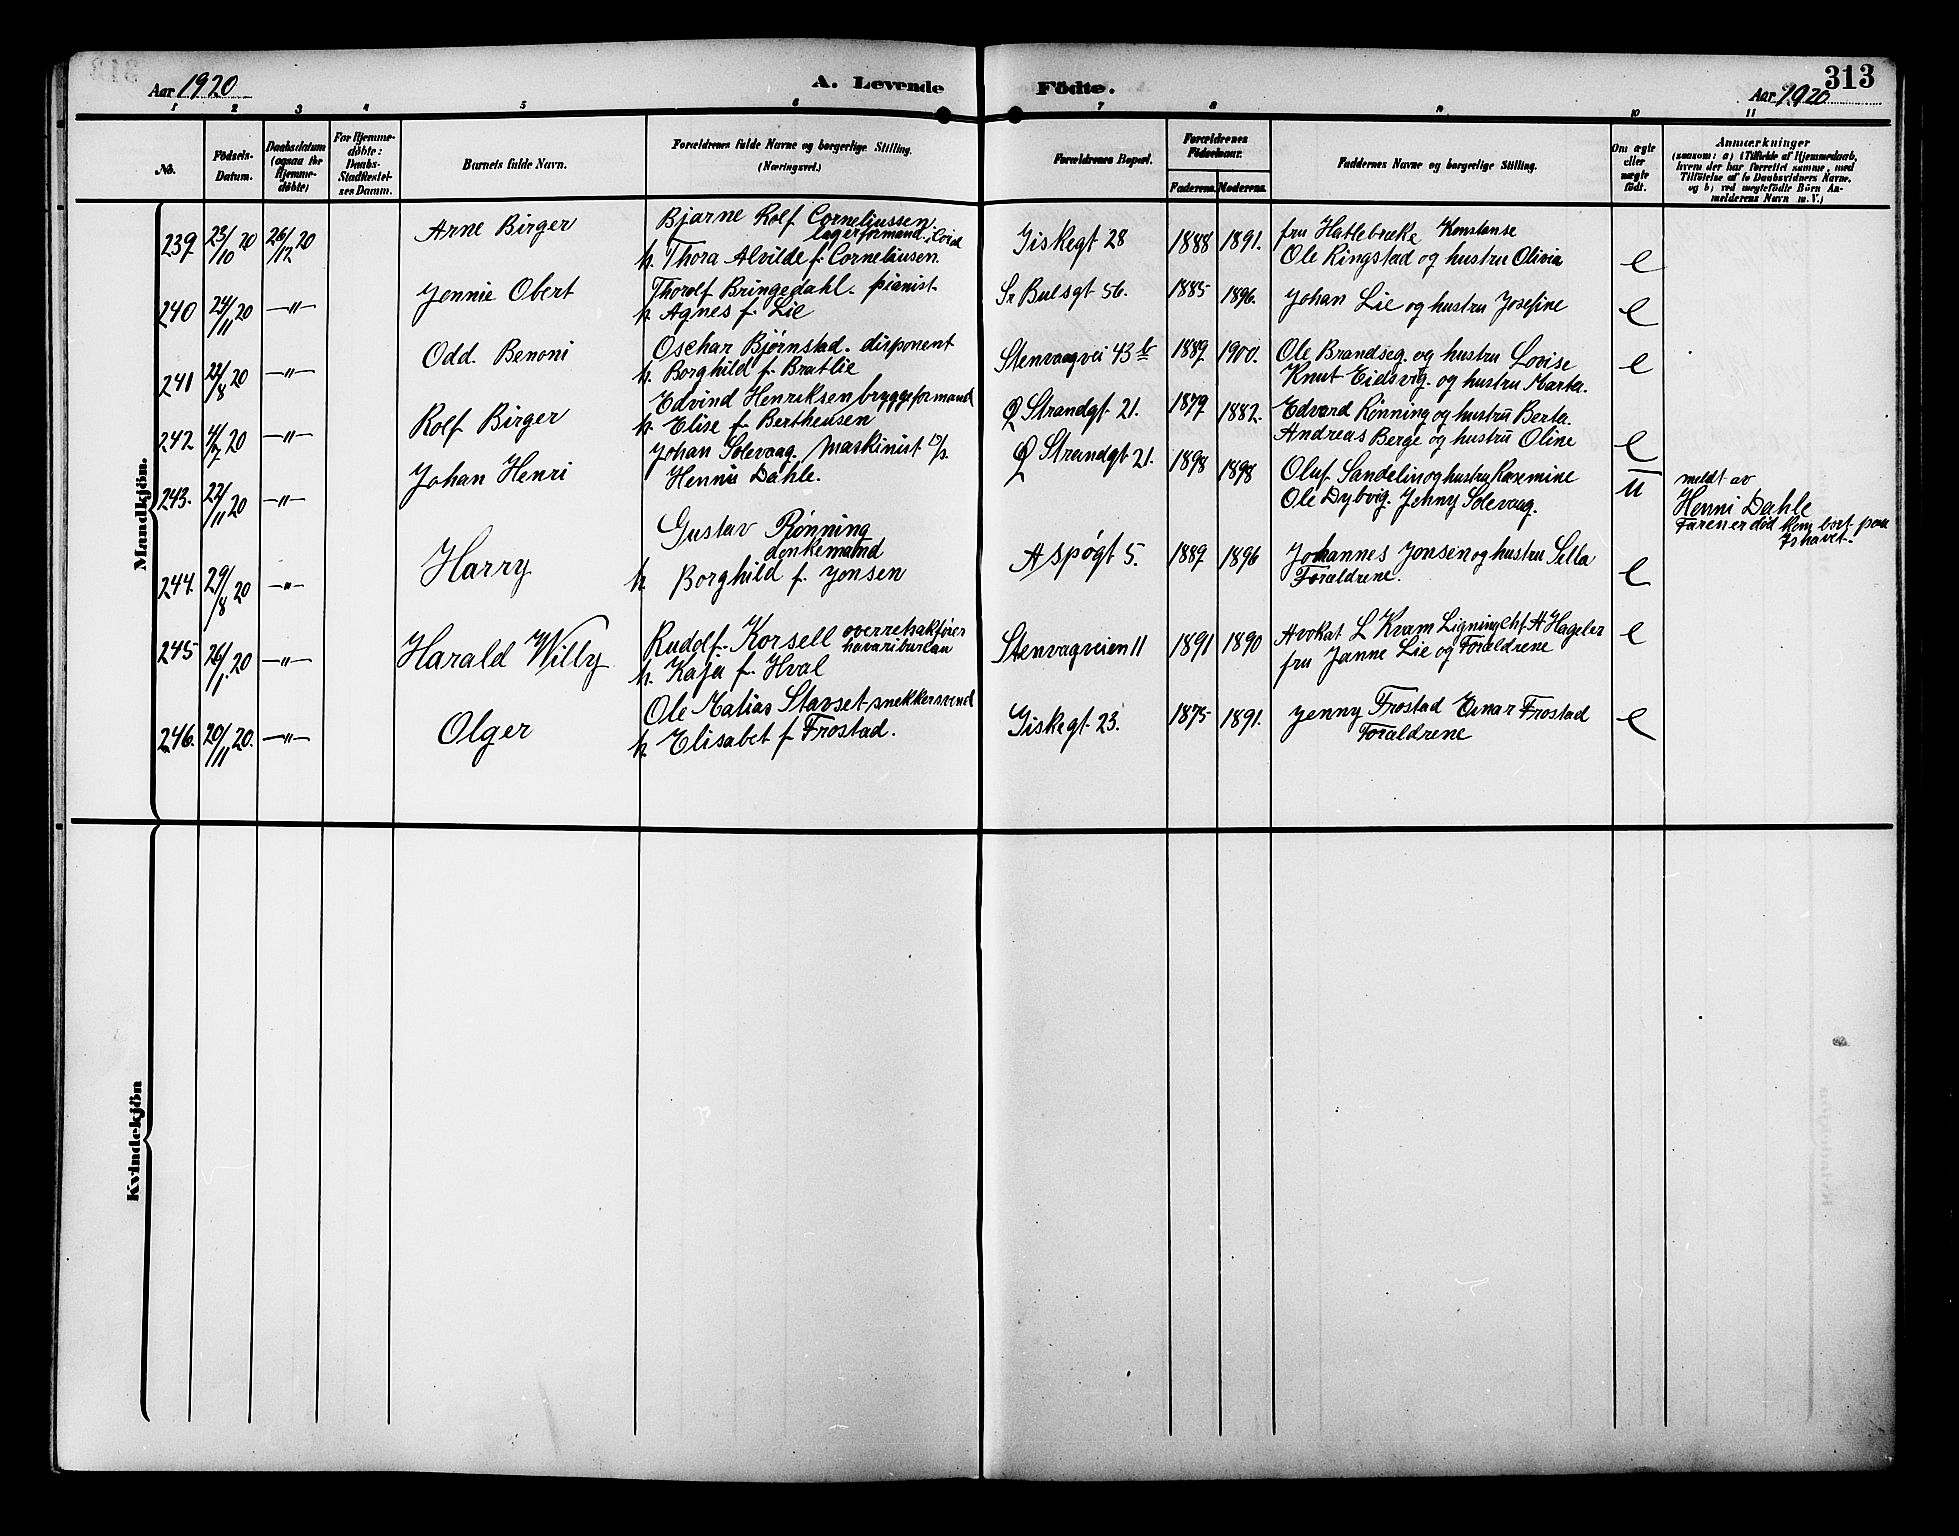 Aar 1920
A. Levende Födte.
313
Aar 1920
1 2 3 4 5 6 7 8 9 10 11
No.
Födsels-Datum.
Daabsdatum (ogsaa for Hjemme-döbte)
For Hjemme-döbte: Daabs-Stadfæstel-ses Datum.
Barnets fulde Navn.
Forældrenes fulde Navne og borgerlige Stilling. (Næringsvei.)
Forældrenes Bopæl.
Forældrenes Födselsaar.
Faderens. Moderens.
Faddernes Navne og borgerlige Stilling.
Om ægte eller uægte födt.
Anmærkninger
(saasom: a) i Tilfælde af Hjemmedaab,
hvem der har forrettet samme, med
Tilföielse af to Daabsvidners Navne.
og b) ved uægtefödte Börn An-
melderens Navn m. V.)
Mandkjön.
239 23/10 20 26/12 20 Arne Birger Bjarne Rolf Corneliussen lagerformand
h. Thora Alvilde f. Corneliusen.
Giskegt 28 1888 1891. fru Hatlebrække Konstanse
Ole Ringstad og hustru Olivia e
240 24/11 20 —"— Jennie Obert Thorolf Bringedahl. pianist
h Agnes f. Lie
Sr Bulsgt 56. 1885 1896. Johan Lie og hustru Josefine e
241 22/8 20 —"— Odd. Benoni Oschar Bjørnstad. disponent
h. Borghild f. Bratlie
Stenvaagvei 43 b 1889 1900. Ole Brandseg. og hustru Lovise
Knut Eidsvig. og hustru Marta. e
242 4/7 20 —"— Rolf Birger Edvind Henriksen bryggeformand
h. Elise f. Bertheusen
Ø Strandgt 21. 1879 1882. Edvard Rønning og hustru Berta.
Andreas Berge og hustru Oline e
243. 22/11 20 —"— Johan Henri Johan Solevaag. Maskinist
Henni Dahle.
Ø Strandgt 21. 1898 1898 Oluf Sandelin og hustru Rasmine
Ole Dybvig. Jenny Solevaag. u
meldt av
Henni Dahle
Faren er død kom bort paa
Ishavet.
244. 29/8 20 —"— Harry Gustav Rønning
donkemand
h Borghild f. Jonsen
Aspøgt 5. 1889 1896 Johannes Jonsen og hustru Silla
Foraldrene. e
245 26/1. 20 —"— Harald Willy Rudolf. Korsell overretsakfører
havaribureau
h. Kaja f. Hval
Stenvagveien 11 1891 1890 Avokat L Kvam Ligningchf A Hageler
fru Janne Lie og Foraldrene e
246. 20/11 20. —"— Olger Ole Matias Stavset snekkersvend
h. Elisabet f Frostad.
Giskegt 23. 1875 1891. Jenny Frostad Einar Frostad
Foraldrene e
Kvindekjön